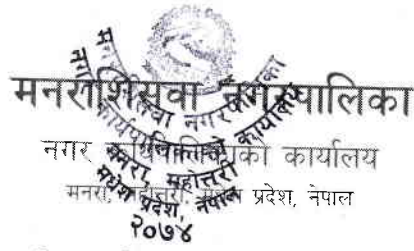 मनराशिसवा नगरपालिका
नगर कार्यपालिकाको कार्यालय
मनरा, महोत्तरी, मधेश प्रदेश, नेपाल
मनराशिसवा नगरपालिका
नगर कार्यपालिकाको कार्यालय
मनरा, महोत्तरी
मधेश प्रदेश, नेपाल
२०७४